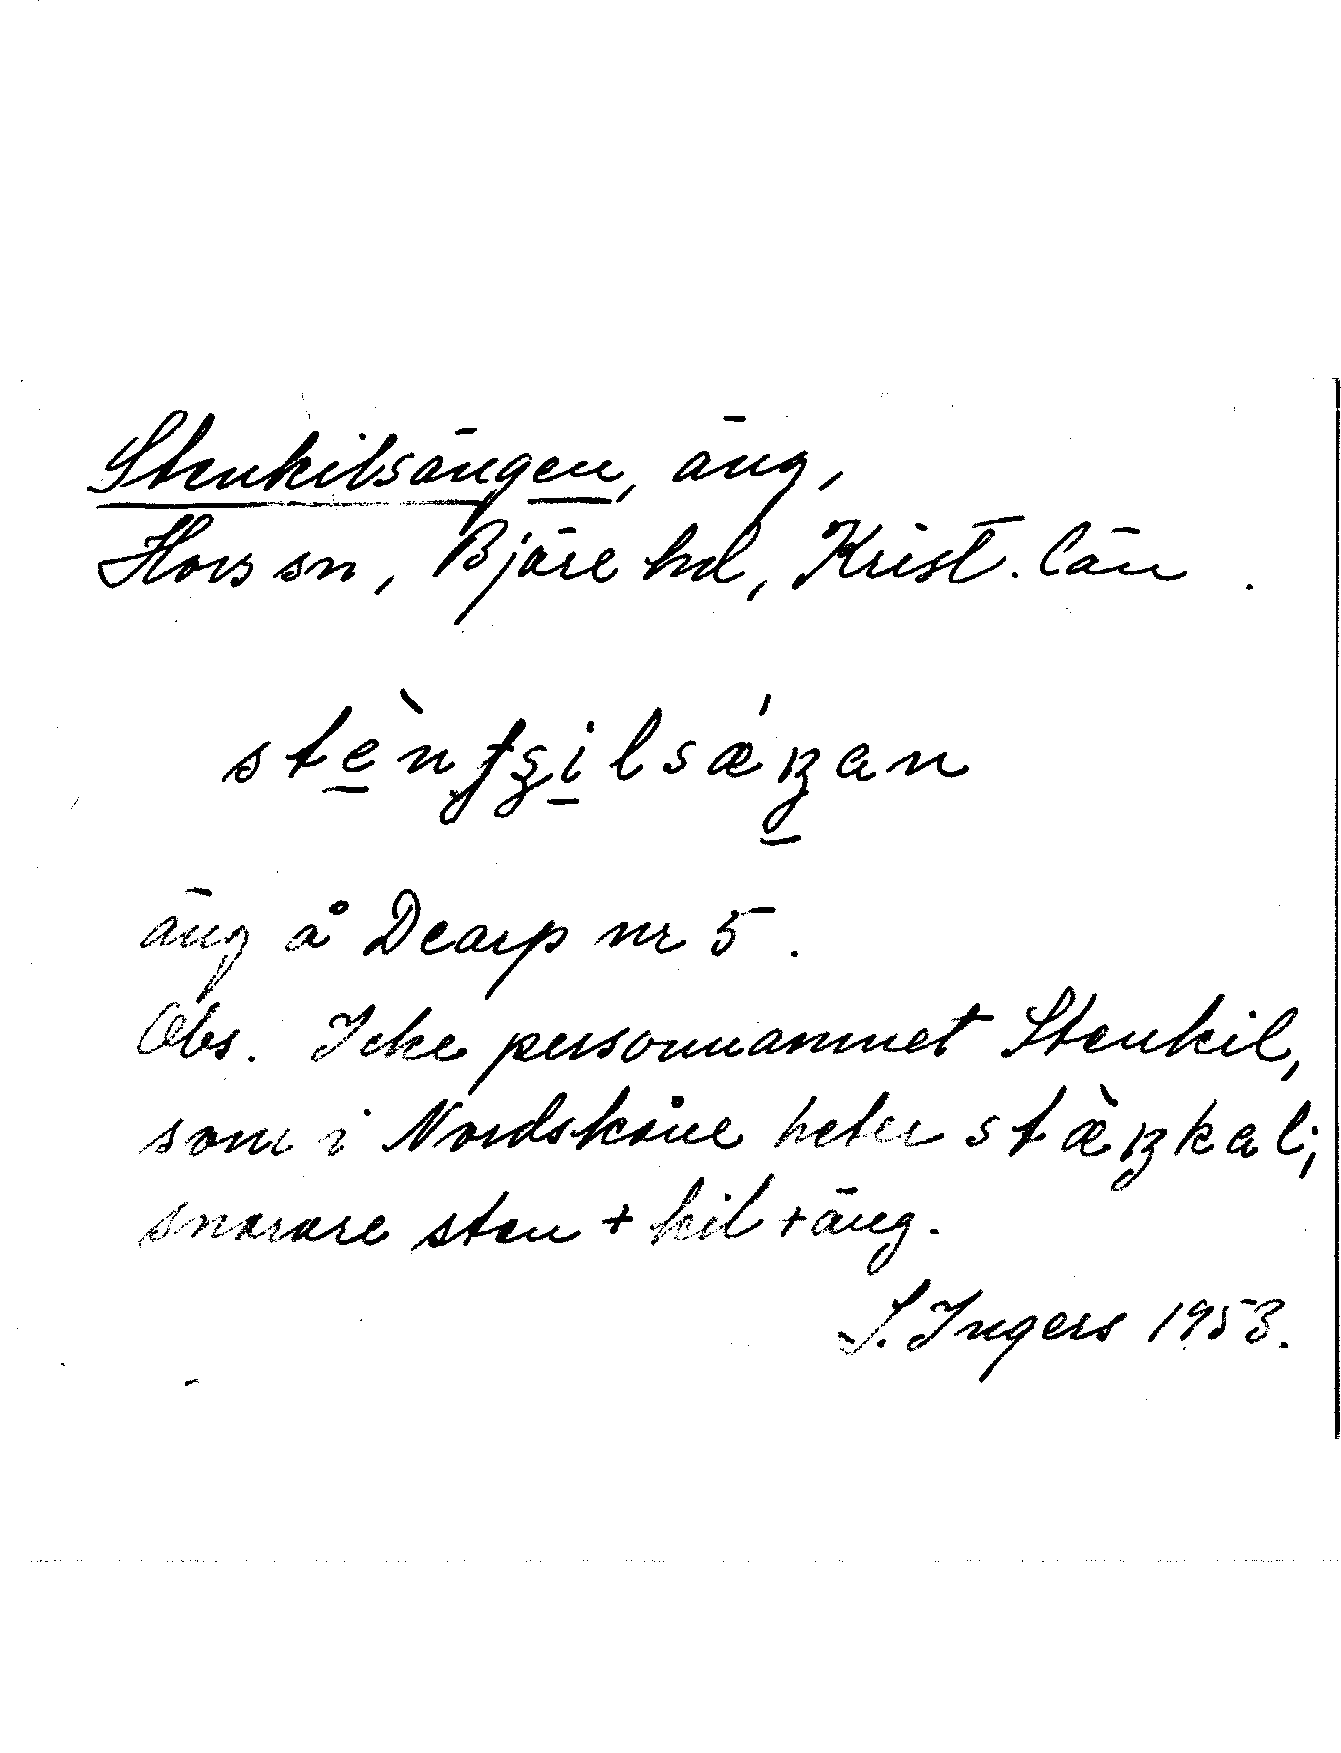 Stenkilsängen, äng,
Hovs sn, Bjäre hd, Krist. län.
stèntʂilsǽŋan
äng å Dearp nr 5.
Obs. Icke personnamnet Stenkil,
som i Nordskåne heter stæ̀ŋkal;
snarare sten + kil + äng.
S. Ingers 1953.